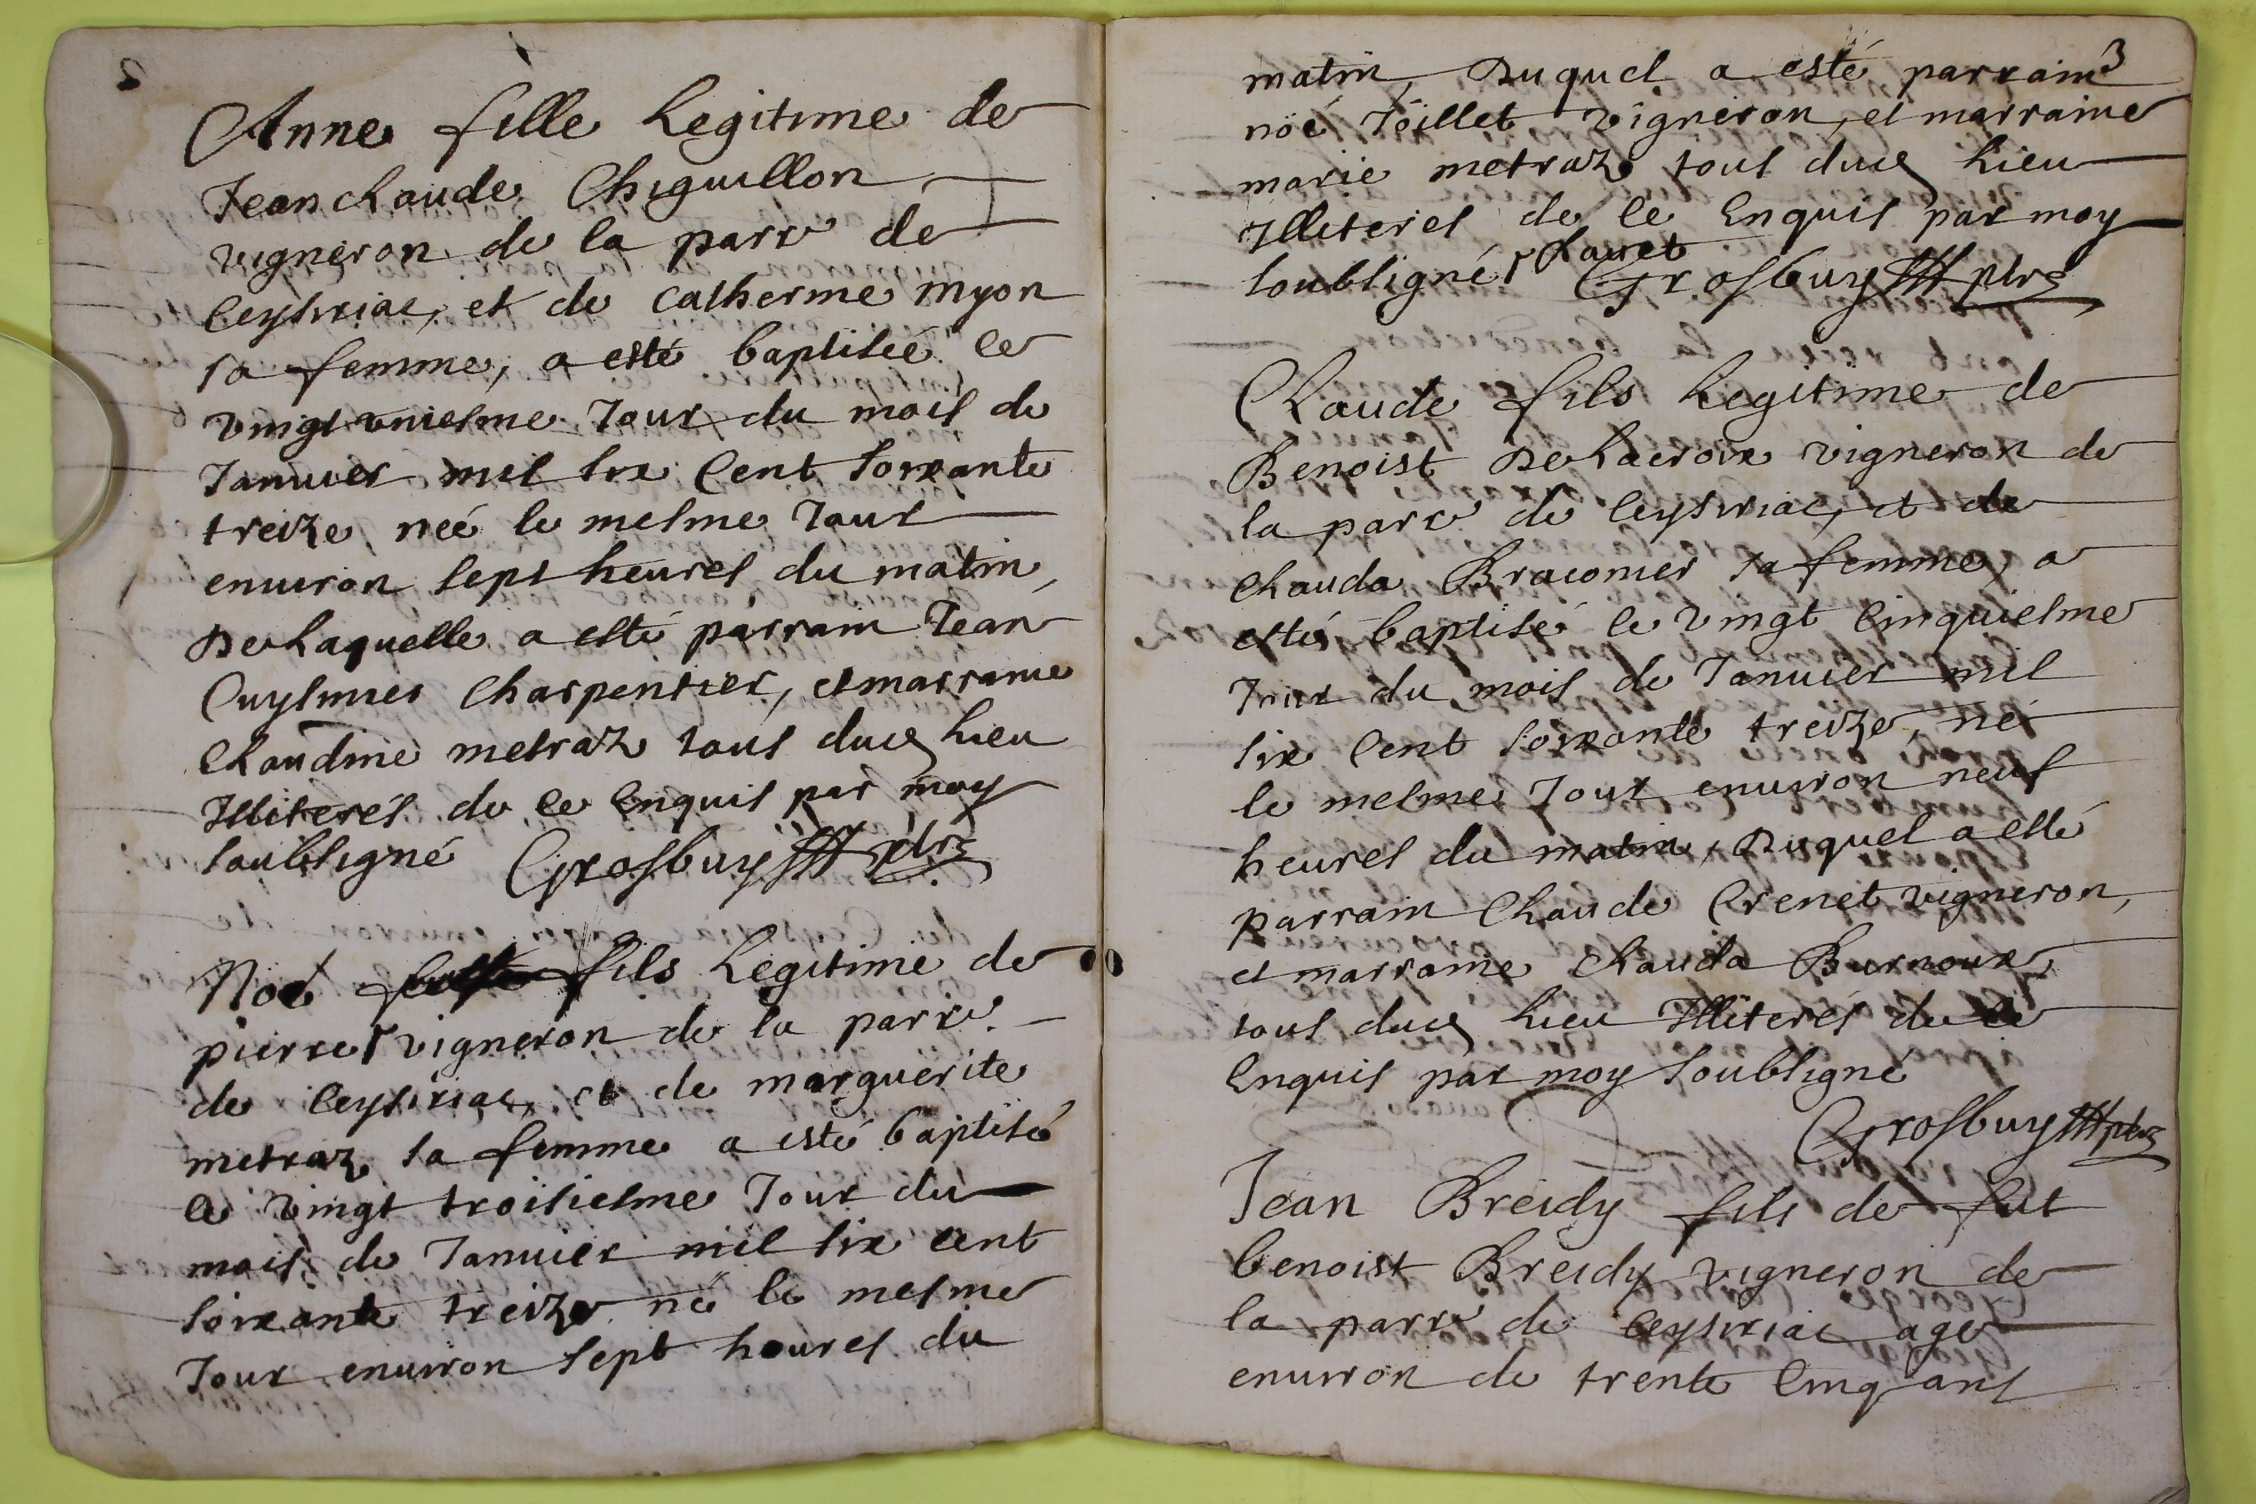 2
Anne fille Legitime de
Jean Claude Chiguillon
vigneron de la parre de
Ceysiriac, et de Catherine myon
sa femme, a esté baptisée le
vingt vniesme Jour du mois de
Januier mil six Cent soixante
treize née le mesme Jour
enuiron sept heures du matin,
De Laquelle a esté parrain Jean
Cuysinier Charpentier, et marraine
Claudine metraz tous dud Lieu
Illiterés de ce Enquis par moy
soubsigné Grosbuy ptre
Noel fils Legitime de
pierre vigneron de la parre
de Ceysiriac, et de marguerite
metraz sa femme a esté baptisé
le vingt troisiesme Jour du
mois de Januier mil six cent
soixante treize né le mesme
Jour enuiron sept heures du
3
matin, Duquel a esté parrain
noé Joillet vigneron, et marraine
marie metraz tous dud Lieu
Illiterés de ce Enquis par moy
soubsigné Louet Grosbuy ptre
Claude fils Legitime de
Benoist DeLacroix vigneron de
la parre de Ceysiriac, et de
Clauda Braconier sa femme, a
esté baptisé le vingt Cinquiesme
Jour du mois de Januier mil
six Cent soixante treize, né
le mesme Jour enuiron neuf
heures du matin, Duquel a esté
parrain Claude Crenet vigneron,
et marraine Clauda Burnoux,
tous dud Lieu Illiterés de ce
Enquis par moy soubsigné
Grosbuy ptre
Jean Breidy fils de fut
benoist Breidy vigneron de
la parre de Ceysiriac age
enuiron de trente Cinq ans